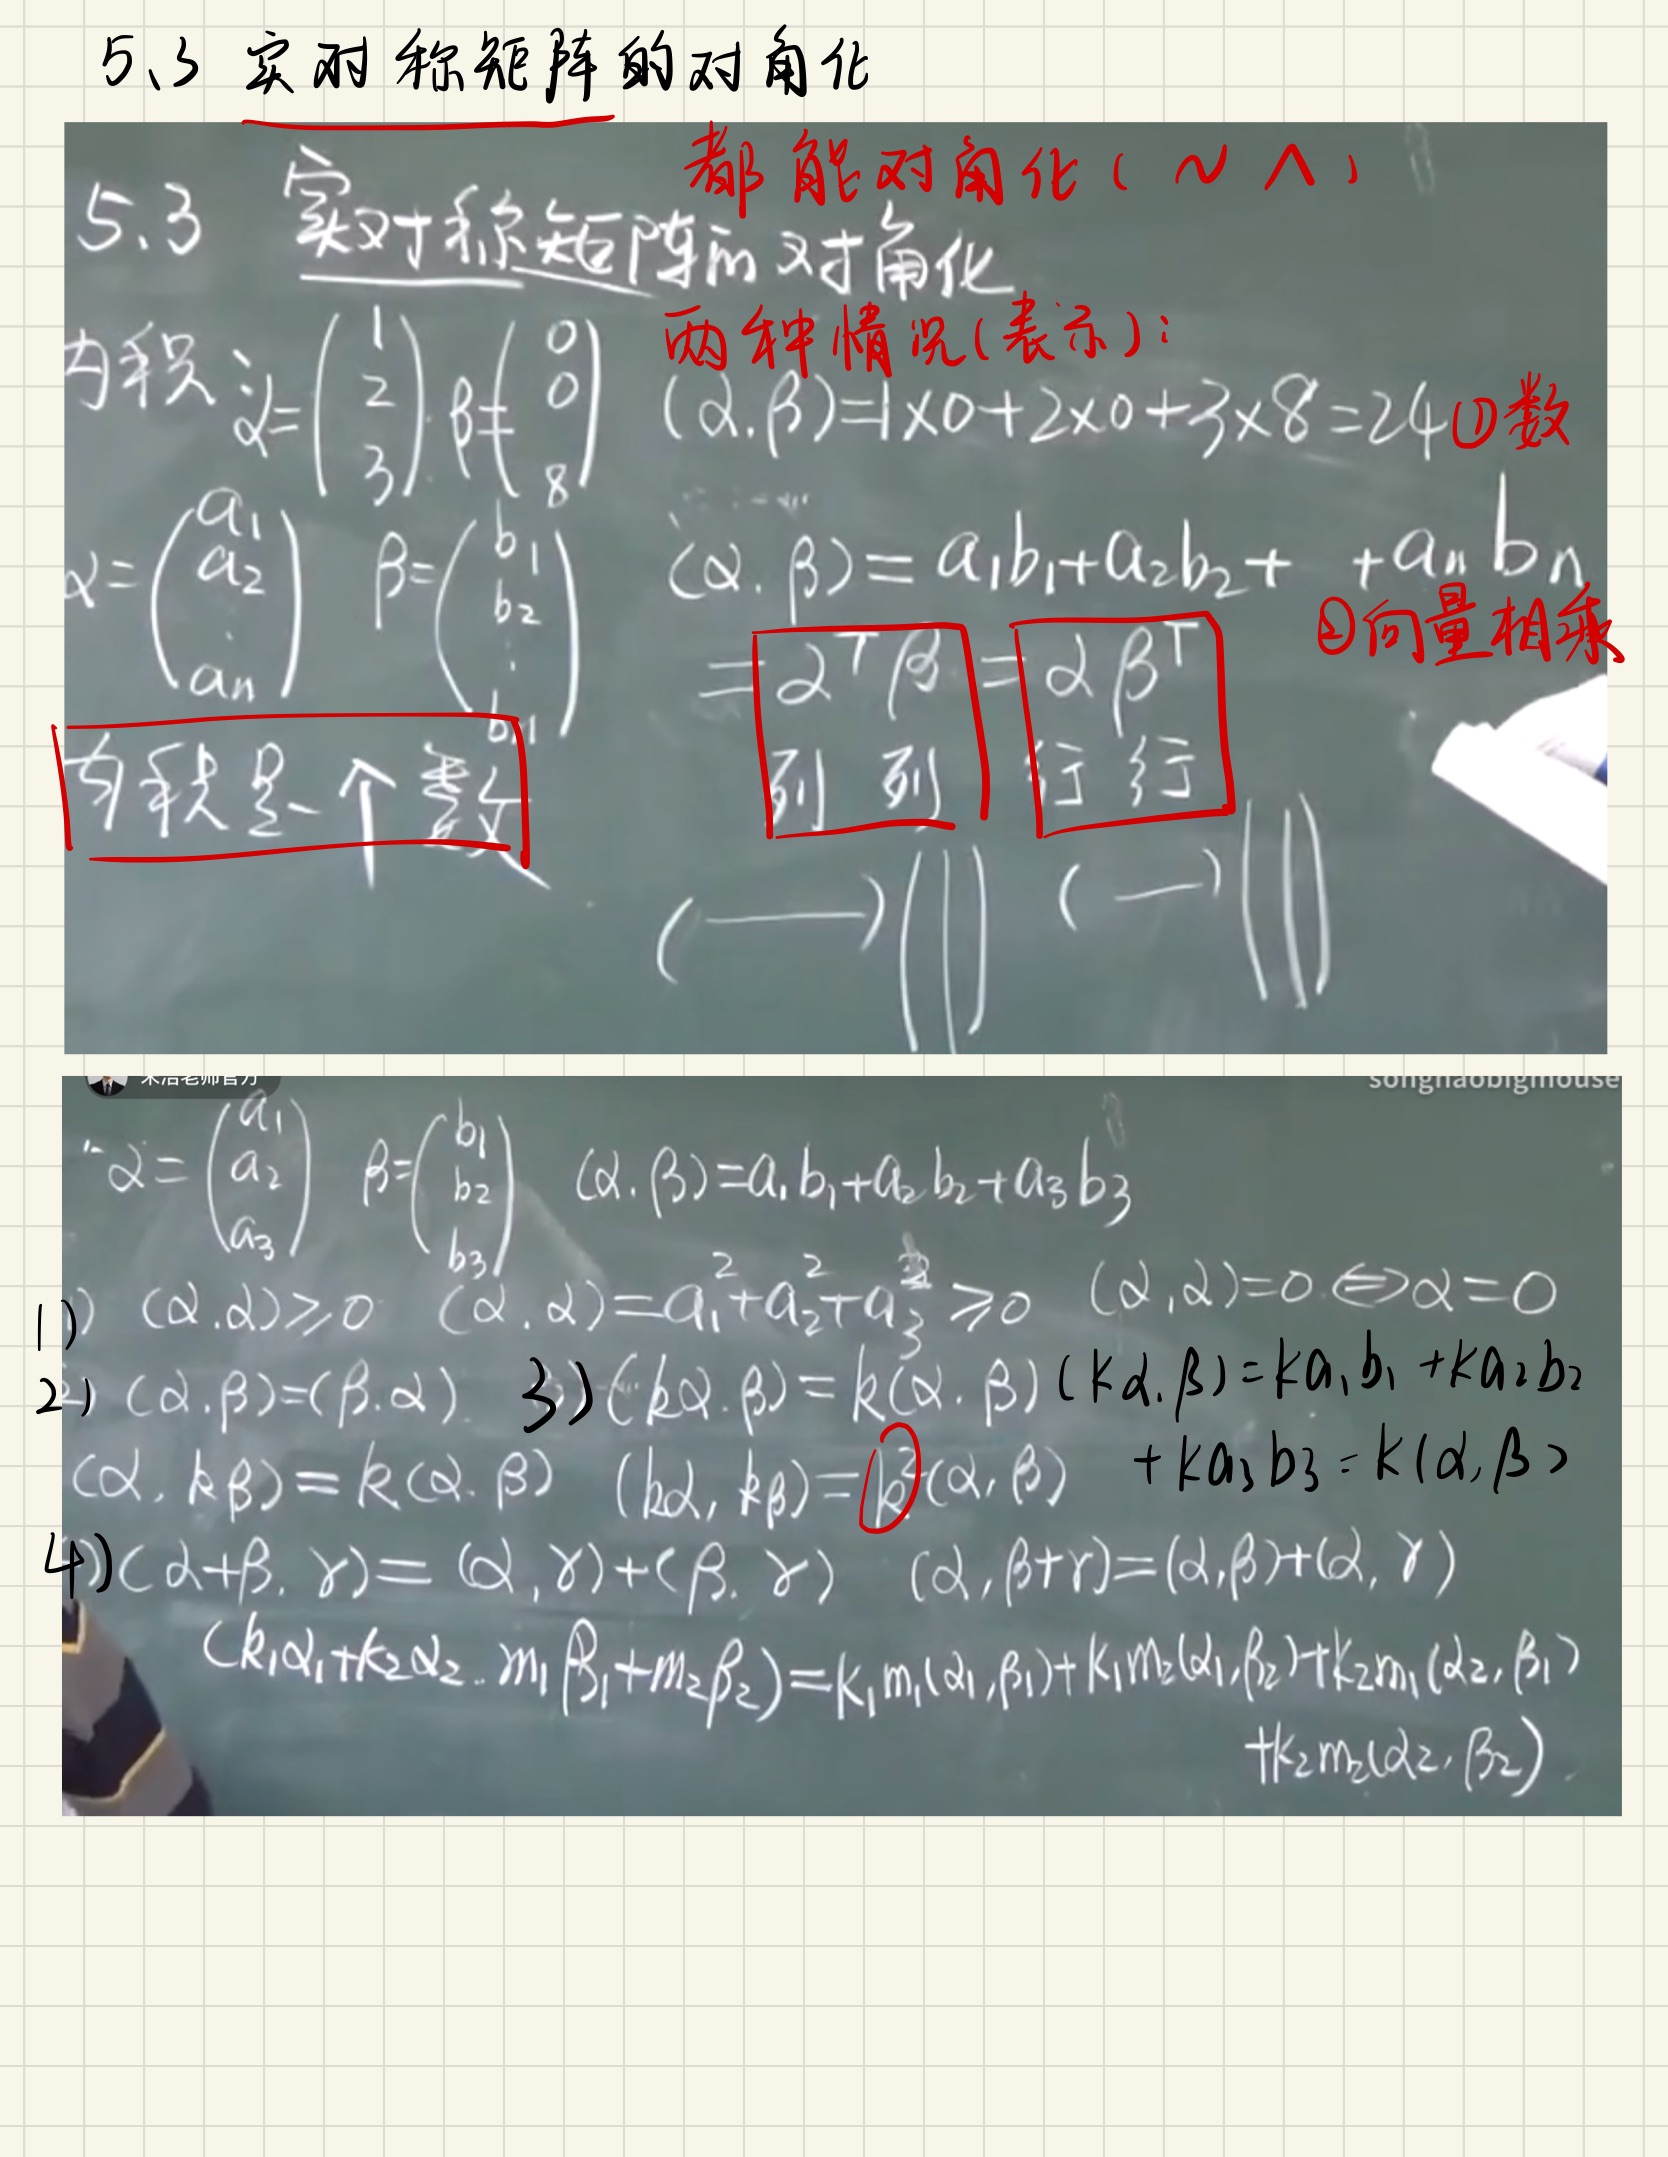 5、3 实对称矩阵的对角化
都能对角化(~Λ)
5.3 实对称矩阵的对角化
两种情况(表示):
内积: α=(1 2 3) β=(0 0 8) (α.β)=1×0+2×0+3×8=24 ①数
α=(a1 a2 ⋮ an) β=(b1 b2 ⋮ bn) (α.β)=a1b1+a2b2+ +anbn
②向量相乘
=α^Tβ=αβ^T
列 列 行 行
内积是一个数
songhaobigmouse
α=(a1 a2 a3) β=(b1 b2 b3) (α.β)=a1b1+a2b2+a3b3
1) (α.α)≥0 (α.α)=a1²+a2²+a3²≥0 (α,α)=0⇔α=0
2) (α.β)=(β.α). 3) (kα.β)=k(α.β) (kα.β)=ka1b1+ka2b2
+ka3b3=k(α,β)
(α,kβ)=k(α.β) (kα,kβ)=k²(α,β)
4) (α+β.γ)=(α,γ)+(β.γ) (α,β+γ)=(α,β)+(α,γ)
(k1α1+k2α2..m1β1+m2β2)=k1m1(α1,β1)+k1m2(α1,β2)+k2m1(α2,β1)
+k2m2(α2,β2)